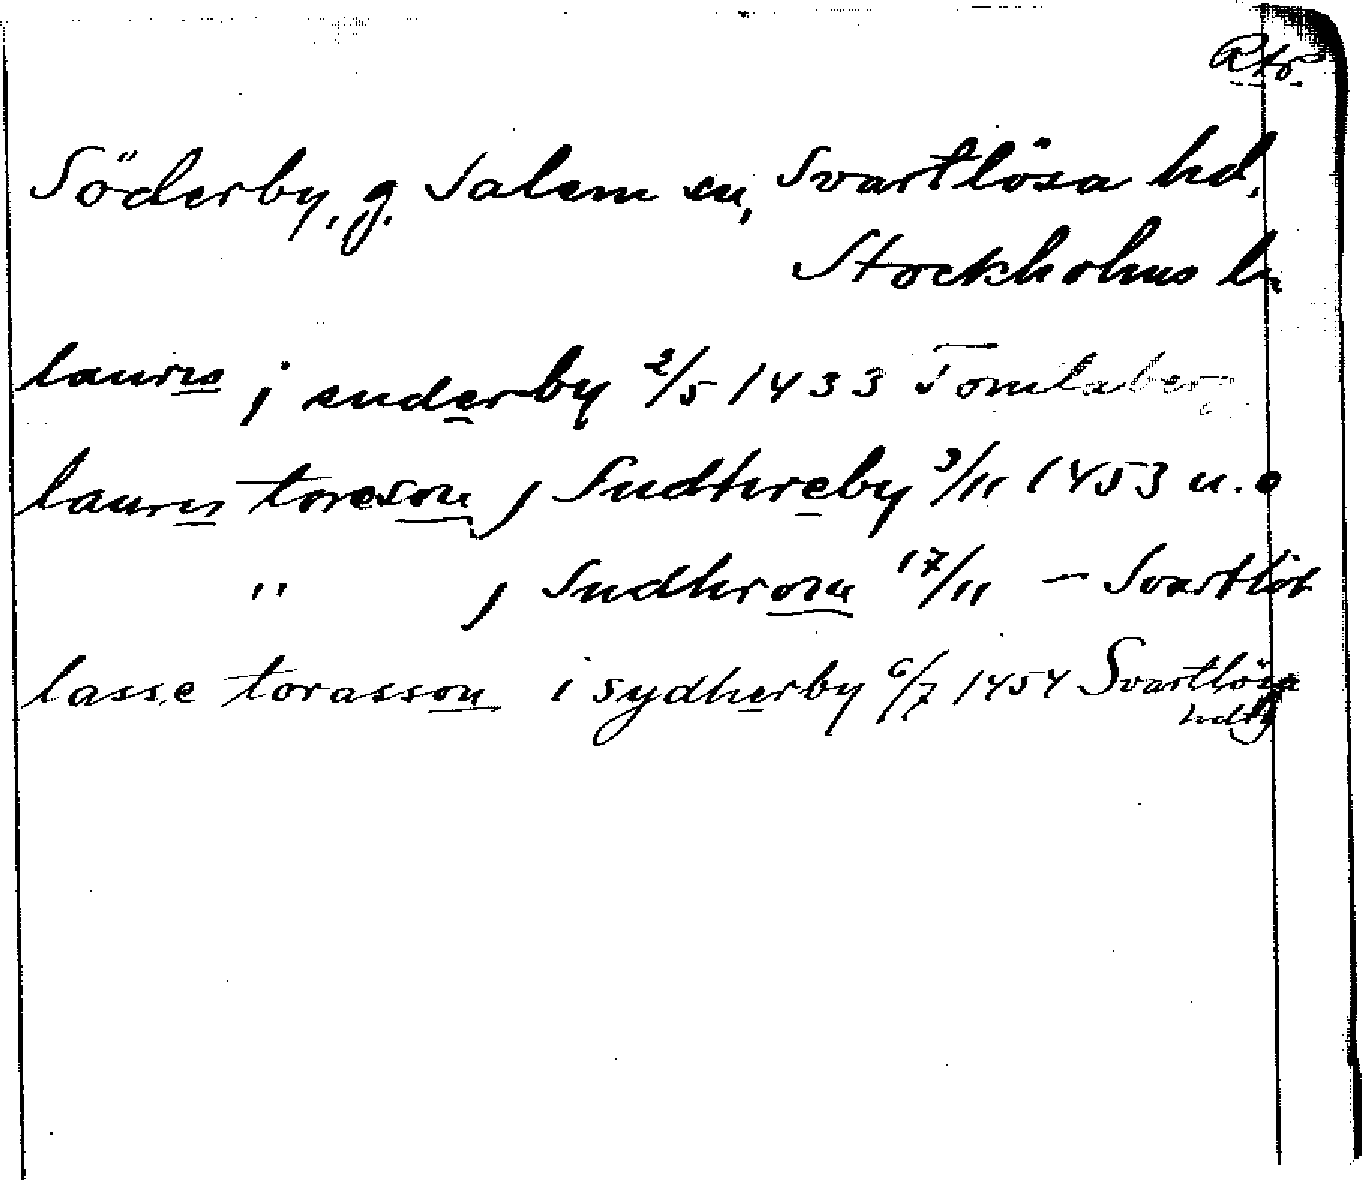 Söderby, g. Salem sn, Svartlösa hd,
Stockholms ln
laurns j suderby 2/5 1433
laurns toreson j Sudhreby 3/11 1453 u.o
" j Sudhrom 17/11 — Svartlöt
lasse torasson i sydherby 6/7 1454 Svartlösa